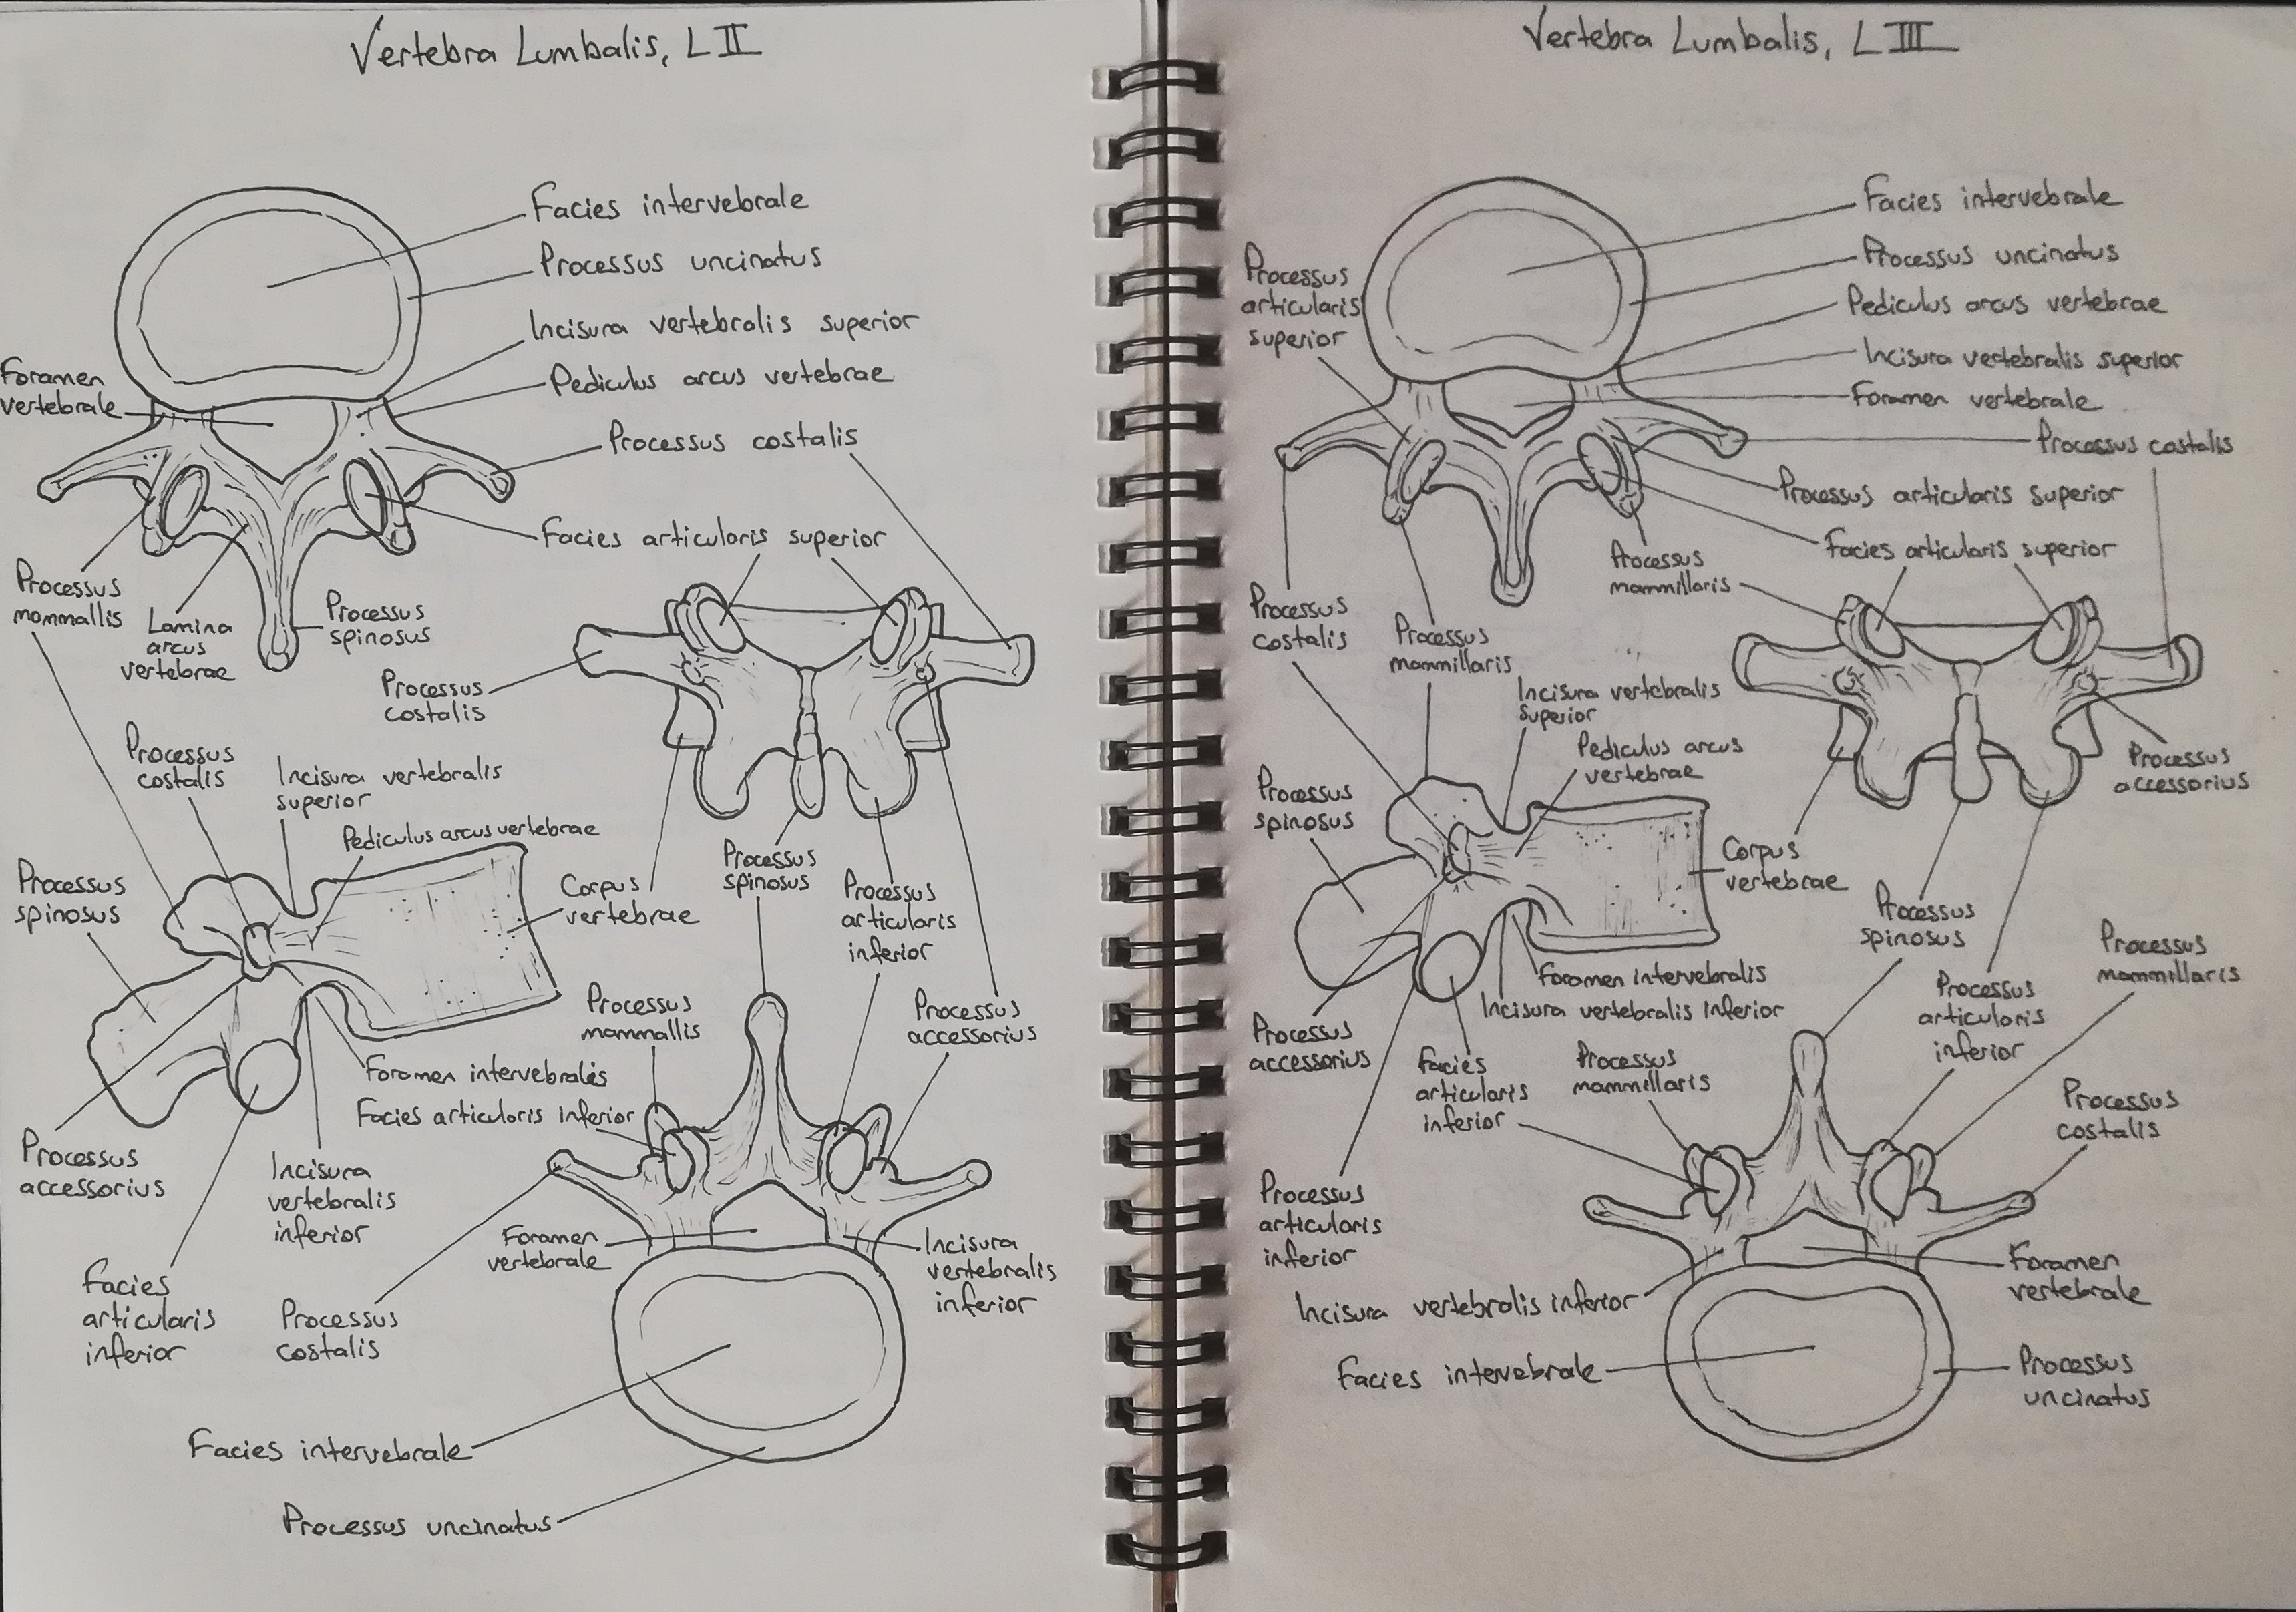 Vertebra Lumbalis, L II
Facies intervebrale
Processus uncinatus
Incisura vertebralis superior
Foramen
vertebrale
Pediculus arcus vertebrae
Processus costalis
Facies articularis superior
Processus
mammallis
Lamina
arcus
vertebrae
Processus
spinosus
Processus
costalis
Processus
costalis
Incisura vertebralis
superior
Pediculus arcus vertebrae
Processus
spinosus
Corpus
vertebrae
Processus
spinosus
Processus
articularis
inferior
Processus
mammallis
Processus
accessorius
Foramen intervebralis
Facies articularis inferior
Processus
accessorius
Incisura
vertebralis
inferior
Foramen
vertebrale
Incisura
vertebralis
inferior
Facies
articularis
inferior
Processus
costalis
Facies intervebrale
Processus uncinatus
Vertebra Lumbalis, L III
Facies intervebrale
Processus uncinatus
Processus
articularis
superior
Pediculus arcus vertebrae
Incisura vertebralis superior
Foramen vertebrale
Processus costalis
Processus articularis superior
Facies articularis superior
Processus
mammillaris
Processus
costalis
Processus
mammillaris
Incisura vertebralis
superior
Pediculus arcus
vertebrae
Processus
accessorius
Processus
spinosus
Corpus
vertebrae
Processus
spinosus
Processus
mammillaris
Foramen intervebralis
Incisura vertebralis inferior
Processus
articularis
inferior
Processus
accessorius
Facies
articularis
inferior
Processus
mammillaris
Processus
costalis
Processus
articularis
inferior
Incisura vertebralis inferior
Foramen
vertebrale
Facies intervebrale
Processus
uncinatus